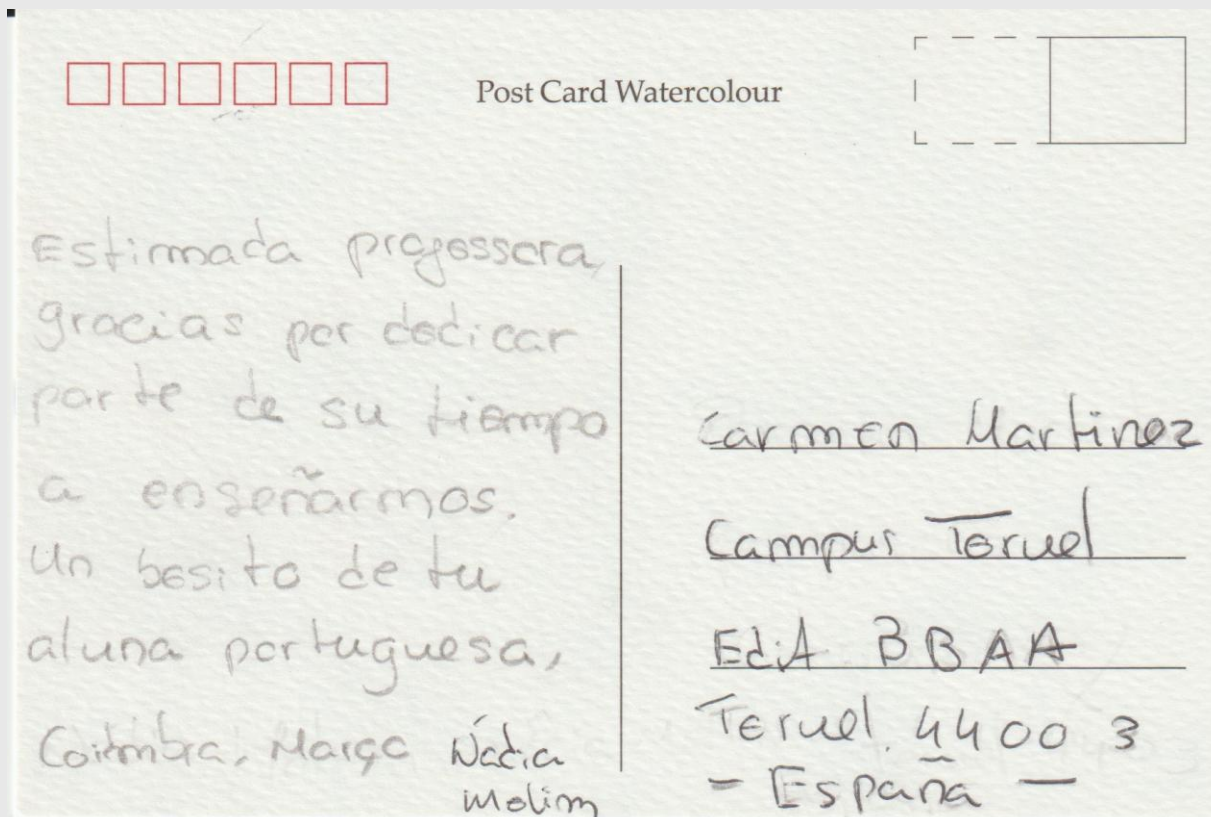 Post Card Watercolour
Estimada progessora,
gracias por dedicar
parte de su tiempo
a enseñarmos.
Un besito de tu
aluna portuguesa,
Coimbra, Março Nádia
Carmen Martinez
Campus Teruel
Edif BBAA
Teruel. 44003
- España -